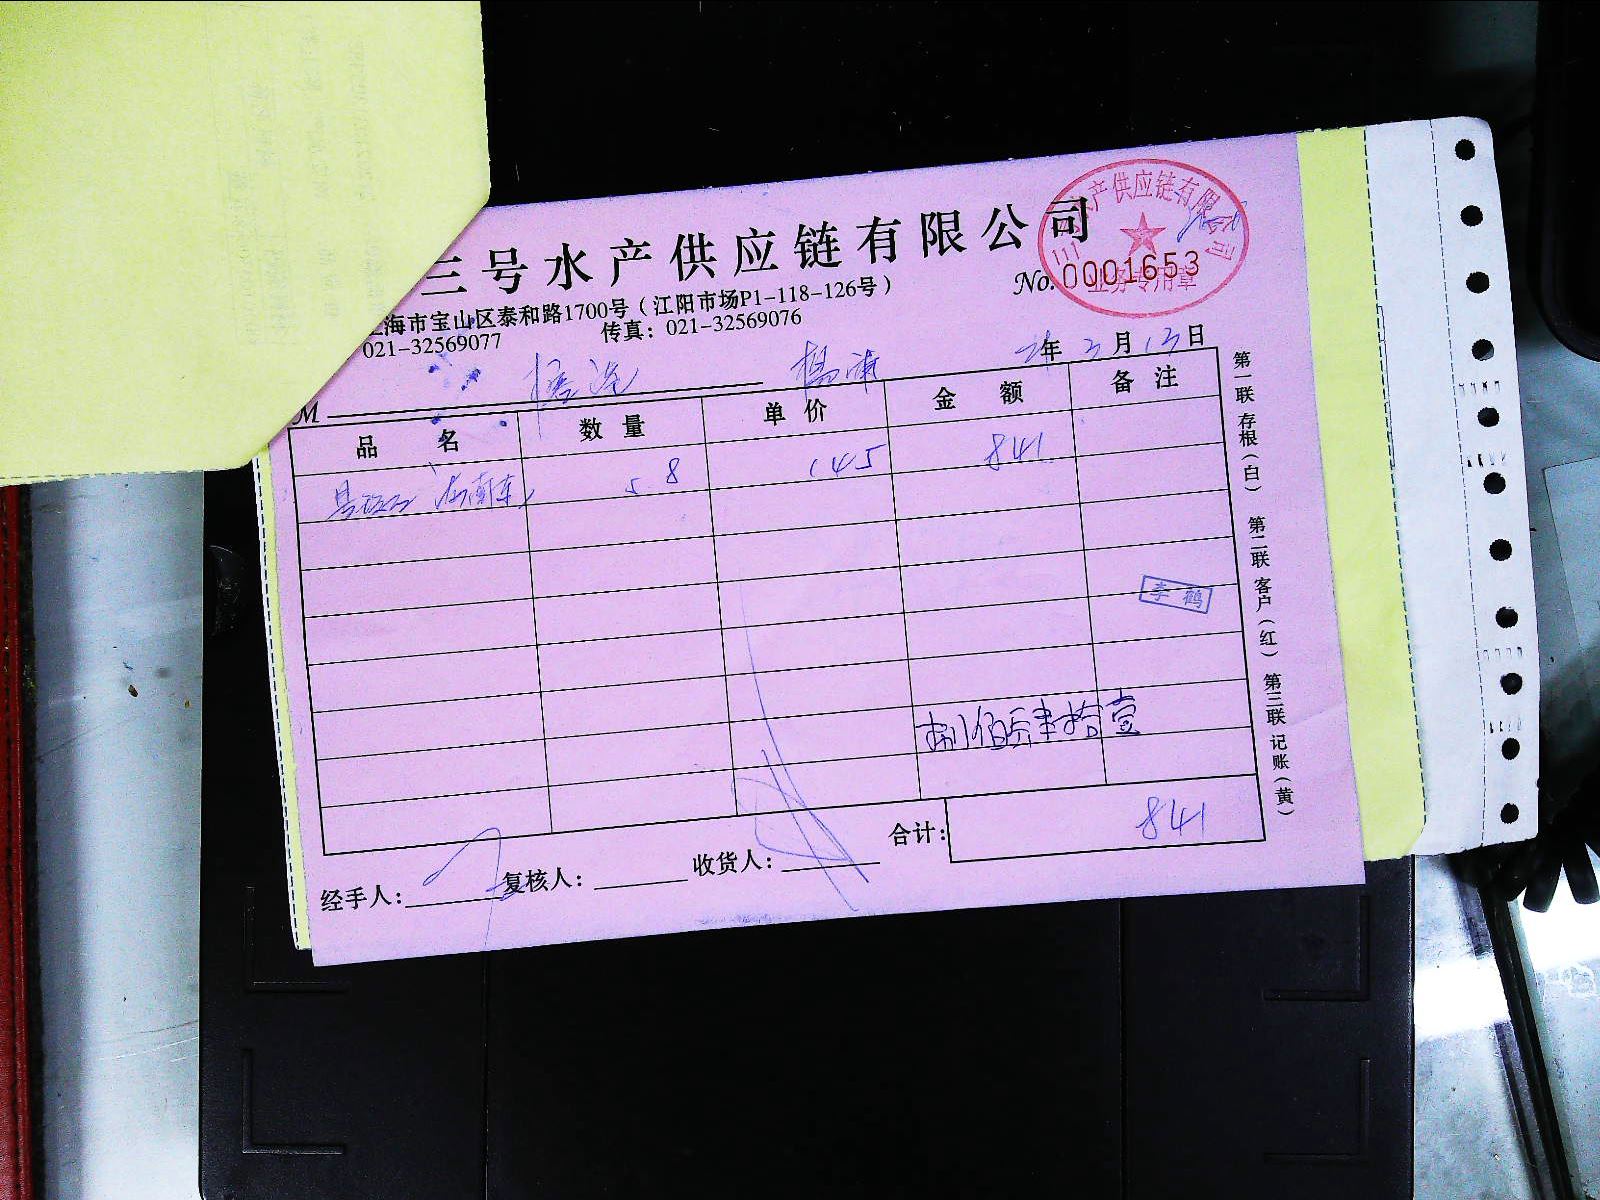 三号水产供应链有限公司
水产供应链有限公司
业务专用章
No. 0001653
上海市宝山区泰和路1700号（江阳市场P1-118-126号）
021-32569077 传真：021-32569076
年 3 月 13 日
M 杨浦
品名 数量 单价 金额 备注
5.8 145 841
李鹤
捌佰肆拾壹
合计： 841
经手人： 复核人： 收货人：
第一联 存根（白） 第二联 客户（红） 第三联 记账（黄）